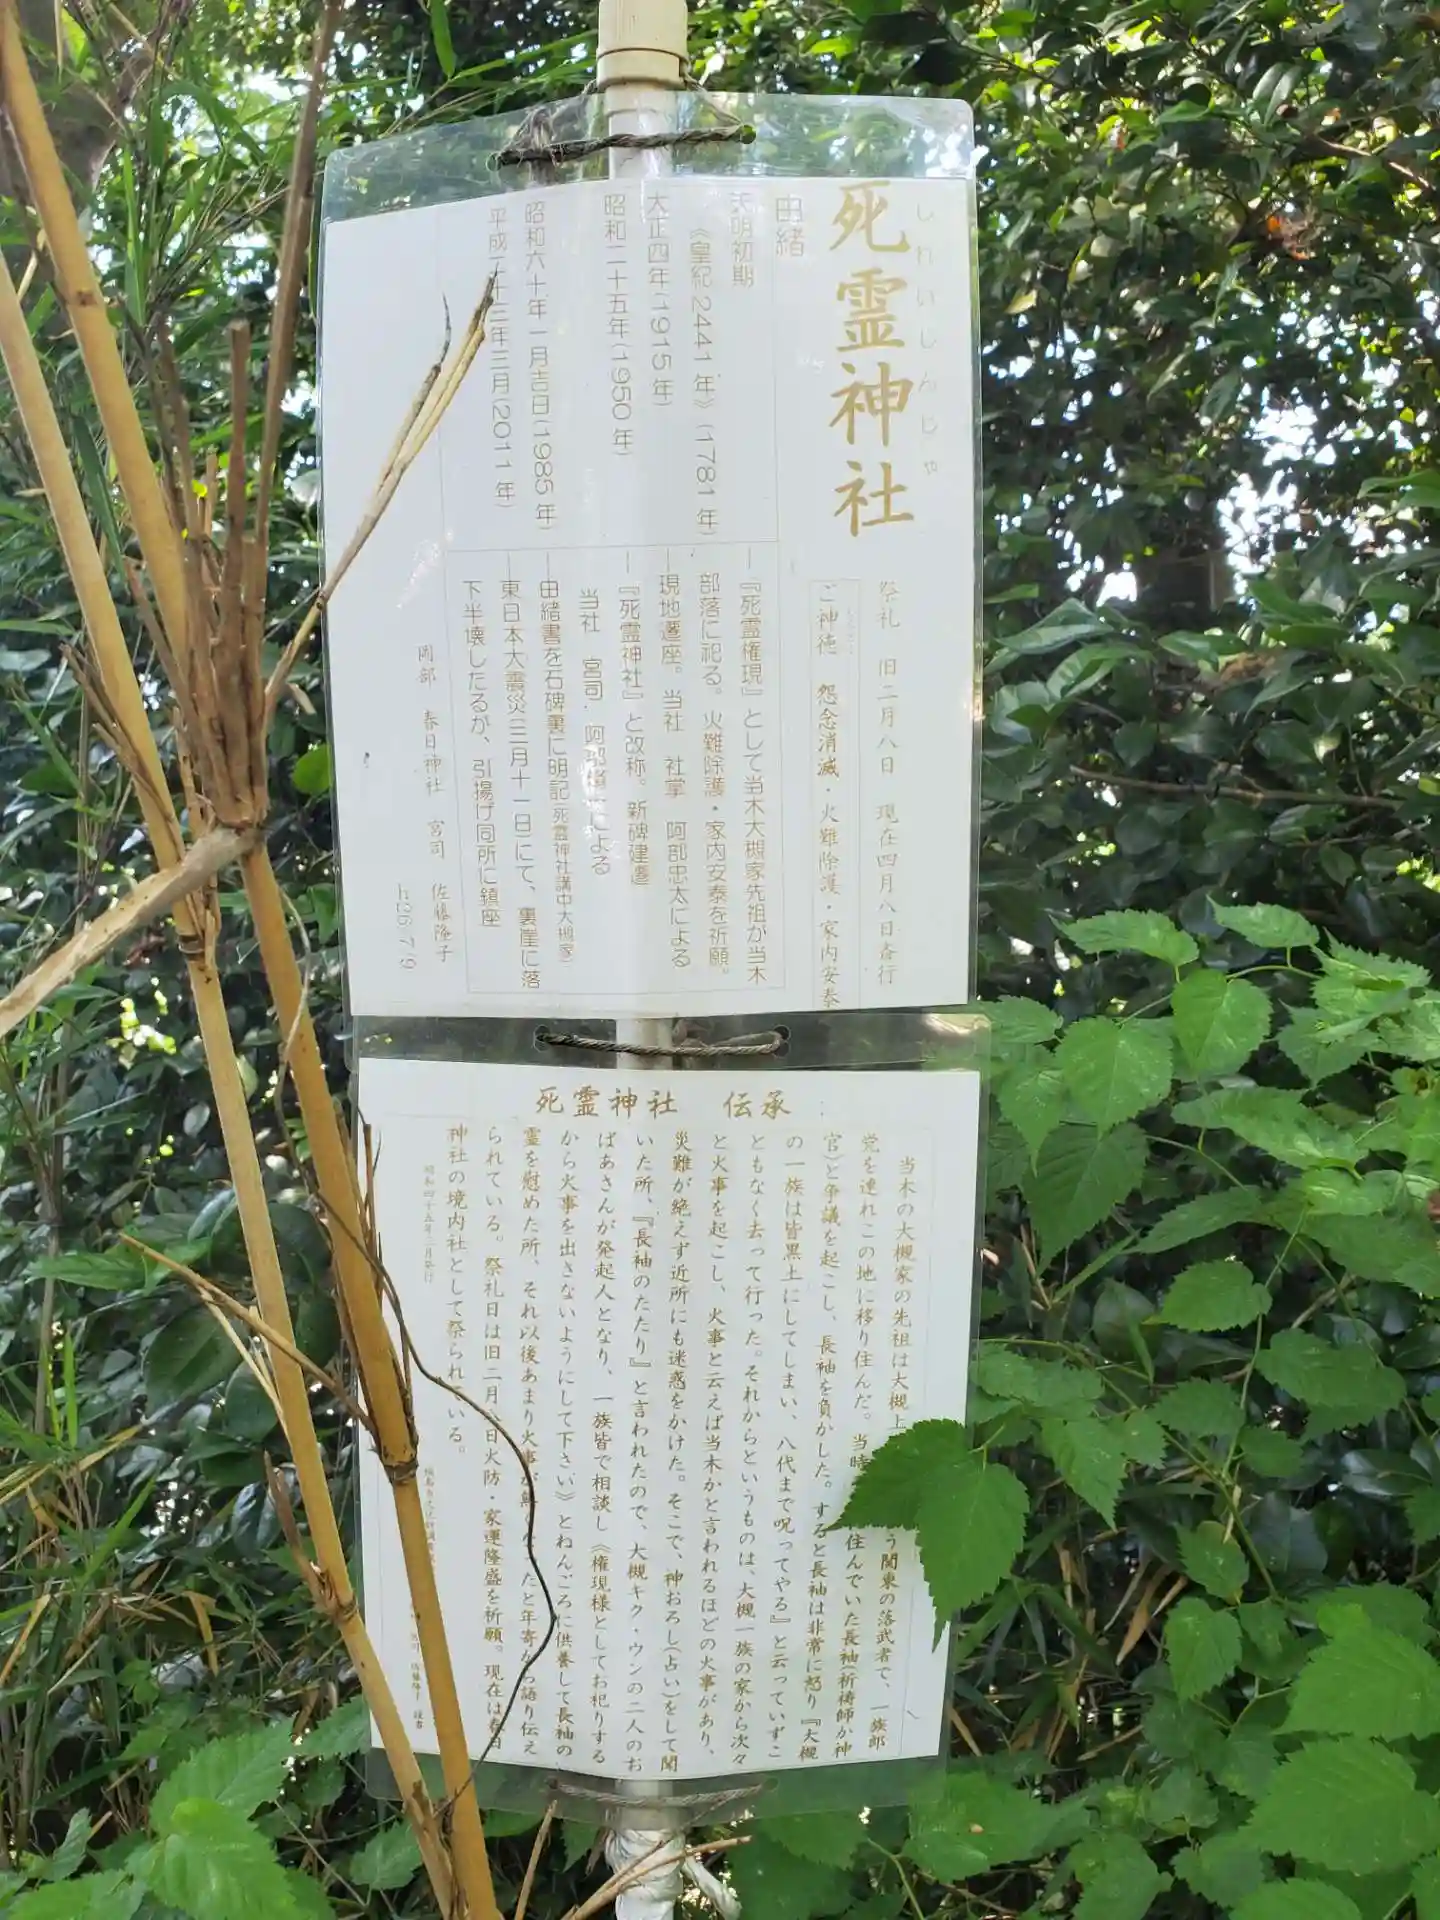 しれいじんじゃ
死霊神社
祭礼 旧二月八日 現在四月八日斎行
ご神徳 怨念消滅・火難除護・家内安泰
由緒
天明初期
《皇紀2441年》(1781年)
―『死霊権現』として当木大槻家先祖が当木
部落に祀る。火難除護・家内安泰を祈願。
大正四年(1915年)
―現地遷座。当社 社掌 阿部忠太による
昭和二十五年(1950年)
―『死霊神社』と改称。新碑建遷
当社 宮司 阿部 による
昭和六十年一月吉日(1985年)
―由緒書を石碑裏に明記(死霊神社講中大槻家)
平成二十三年三月(2011年)
―東日本大震災(三月十一日)にて、裏崖に落
下半壊したるが、引揚げ同所に鎮座
岡部 春日神社 宮司 佐藤隆子
H26.7.9
死霊神社 伝承
当木の大槻家の先祖は大槻上 う関東の落武者で、一族郎
党を連れこの地に移り住んだ。当時 住んでいた長袖(祈祷師か神
官)と争議を起こし、長袖を負かした。すると長袖は非常に怒り『大槻
の一族は皆黒土にしてしまい、八代まで呪ってやる』と云っていずこ
ともなく去って行った。それからというものは、大槻一族の家から次々
と火事を起こし、火事と云えば当木かと言われるほどの火事があり、
災難が絶えず近所にも迷惑をかけた。そこで、神おろし(占い)をして聞
いた所、『長袖のたたり』と言われたので、大槻キク・ウンの二人のお
ばあさんが発起人となり、一族皆で相談し《権現様としてお祀りする
から火事を出さないようにして下さい》とねんごろに供養して長袖の
霊を慰めた所、それ以後あまり火事が無くなったと年寄から語り伝え
られている。祭礼日は旧二月八日火防・家運隆盛を祈願。現在は春日
神社の境内社として祭られている。
昭和四十五年二月発行
宮司 佐藤隆子 謹書